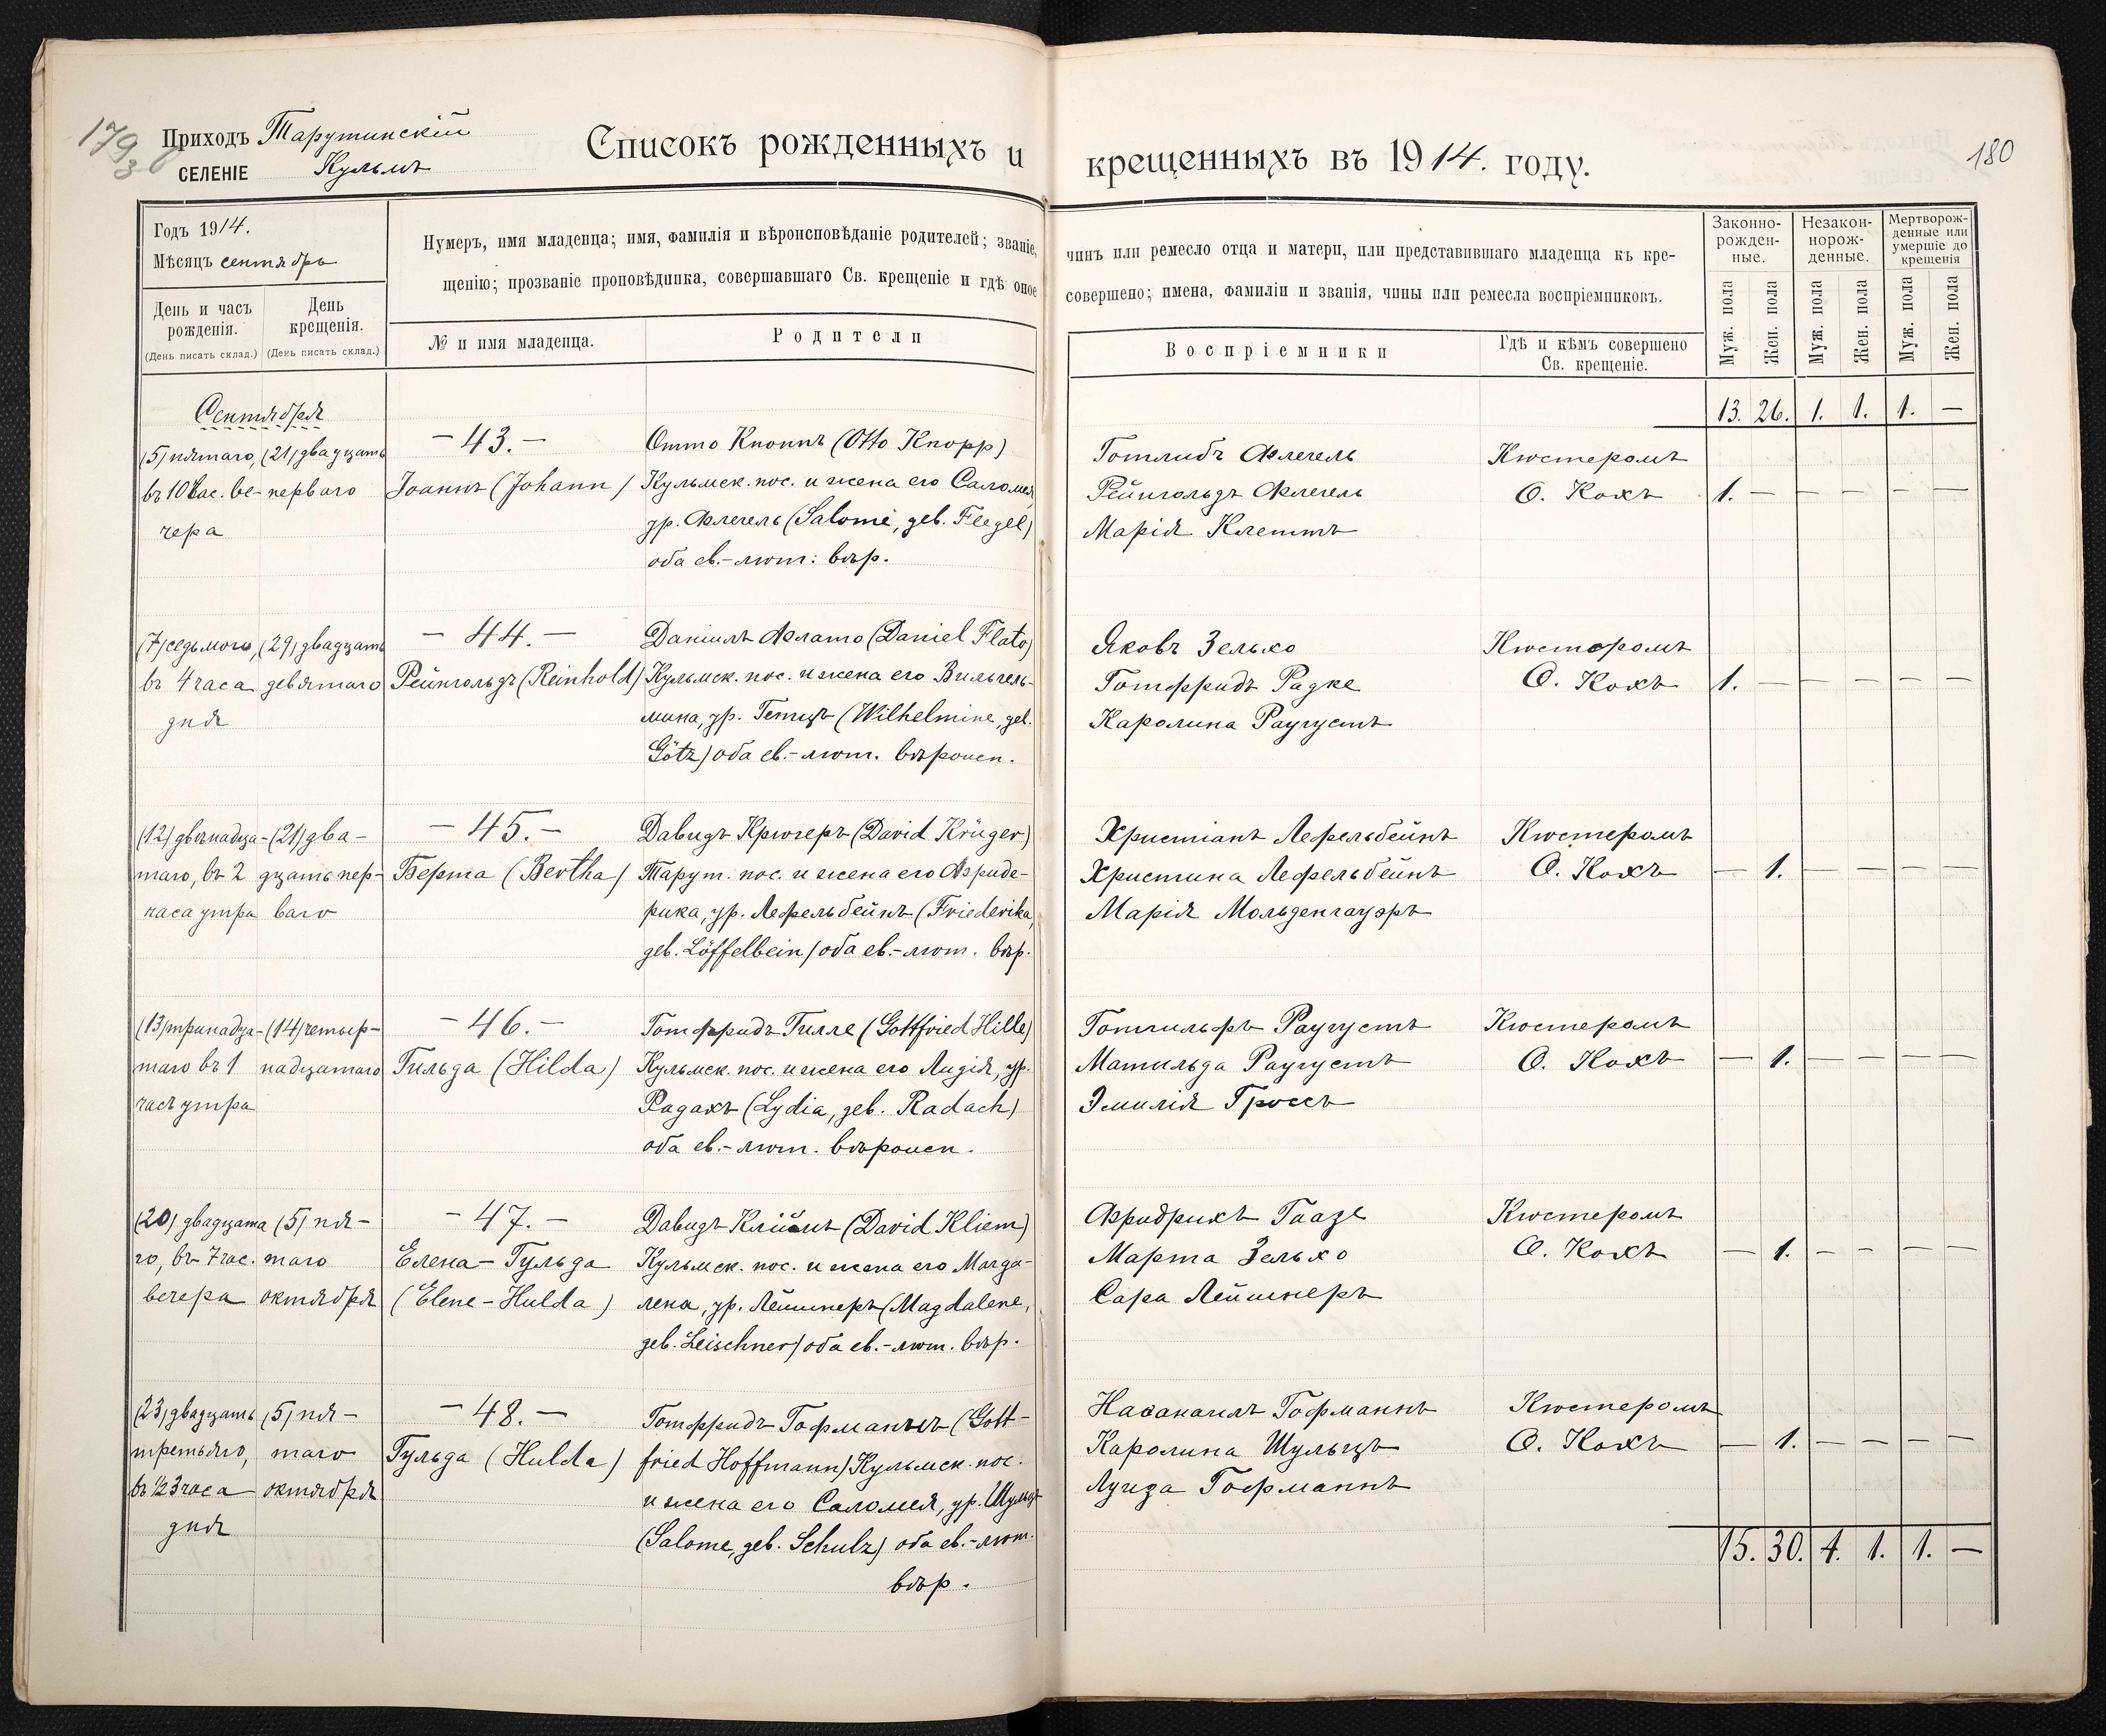 179 об
3
180
Приходъ Тарутинскій
СЕЛЕНІЕ Кульмъ
Списокъ рожденныхъ и крещенныхъ въ 1914. году.
Годъ 1914.
Мѣсяцъ сентябрь
День и часъ рожденія.
(День писать склад.)
День крещенія.
(День писать склад.)
Нумеръ, имя младенца; имя, фамилія и вѣроисповѣданіе родителей; званіе, чинъ или ремесло отца и матери, или представившаго младенца къ кре-
щенію; прозваніе проповѣдника, совершавшаго Св. крещеніе и гдѣ оное совершено; имена, фамиліи и званія, чины или ремесла воспріемниковъ.
№ и имя младенца.
Родители
Воспріемники
Гдѣ и кѣмъ совершено
Св. крещеніе.
Законно-
рожден-
ные.
Незакон-
норож-
денные.
Мертворож-
денные или
умершіе до
крещенія
Муж. пола
Жен. пола
Муж. пола
Жен. пола
Муж. пола
Жен. пола
13. 26. 1. 1. 1. —
Сентября
(5) пятаго,
въ 10 час. ве-
чера
(21) двадцать
перваго
— 43. —
Іоаннъ (Johann)
Отто Кноппъ (Otto Knopp)
Кульмск. пос. и жена его Саломея
ур. Флегель (Salome, geb. Flegel)
оба ев.-лют: вѣр.
Готлибъ Флегель
Рейнгольдъ Флегель
Марія Клеттъ
Кюстеромъ
О. Кохъ
1. — — — — —
(7) седьмого,
въ 4 часа
дня
(29) двадцать
девятаго
— 44. —
Рейнгольдъ (Reinhold)
Даніилъ Флато (Daniel Flato)
Кульмск. пос. и жена его Вильгель-
мина, ур. Гетцъ (Wilhelmine, geb.
Götz) оба ев.-лют. вѣроисп.
Яковъ Зелько
Готфридъ Радке
Каролина Раугустъ
Кюстеромъ
О. Кохъ
1. — — — — —
(12) двѣнадца-
таго, въ 2
часа утра
(21) два-
дцать пер-
ваго
— 45. —
Берта (Bertha)
Давидъ Крюгеръ (David Krüger)
Тарут. пос. и жена его Фриде-
рика, ур. Лефельбейнъ (Friederika,
geb. Löffelbein) оба ев.-лют. вѣр.
Христіанъ Лефельбейнъ
Христина Лефельбейнъ
Марія Мольденгауэръ
Кюстеромъ
О. Кохъ
— 1. — — — —
(13) тринадца-
таго въ 1
часъ утра
(14) четыр-
надцатаго
— 46. —
Гильда (Hilda)
Готфридъ Гилле (Gottfried Hille)
Кульмск. пос. и жена его Лидія, ур.
Радахъ (Lydia, geb. Radach)
оба ев.-лют. вѣроисп.
Готгильфъ Раугустъ
Матильда Раугустъ
Эмилія Гроссъ
Кюстеромъ
О. Кохъ
— 1. — — — —
(20) двадцата
го, въ 7 час.
вечера
(5) пя-
таго
октября
— 47. —
Елена-Гульда
(Elene-Hulda)
Давидъ Клiемъ (David Kliem)
Кульмск. пос. и жена его Магда-
лена, ур. Лейшнеръ (Magdalene,
geb. Leischner) оба ев.-лют. вѣр.
Фридрихъ Гаазе
Марта Зелько
Сара Лейшнеръ
Кюстеромъ
О. Кохъ
— 1. — — — —
(23) двадцать
третьяго,
въ ½3 часа
дня
(5) пя-
таго
октября
— 48. —
Гульда (Hulda)
Готфридъ Гофманнъ (Gott-
fried Hoffmann) Кульмск. пос.
и жена его Саломея, ур. Шульцъ
(Salome, geb. Schulz) оба ев.-лют.
вѣр.
Наѳанаилъ Гофманнъ
Каролина Шульцъ
Луиза Гофманнъ
Кюстеромъ
О. Кохъ
— 1. — — — —
15. 30. 1. 1. 1. —